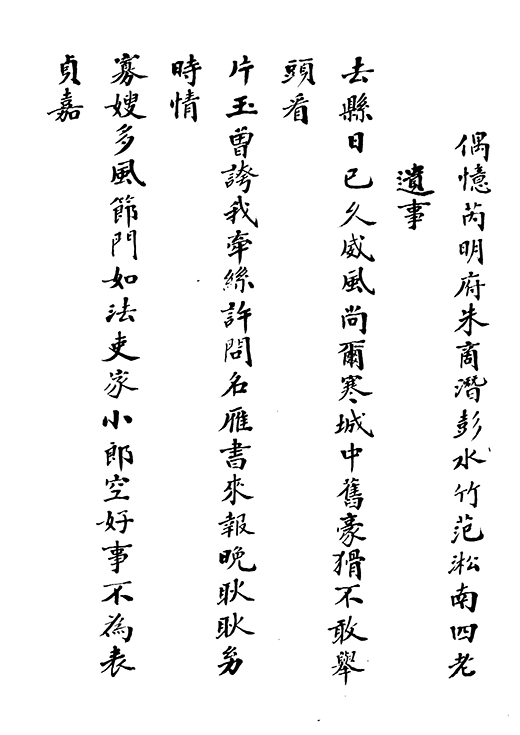 偶憶芮明府朱商潛彭水竹范淞南四老
遺事
去縣日已久威風尚爾寒城中舊豪猾不敢舉
頭看
片玉曾誇我牽絲許問名雁書來報晚耿耿另
時情
寡嫂多風節門如法吏家小郎空好事不為表
貞嘉